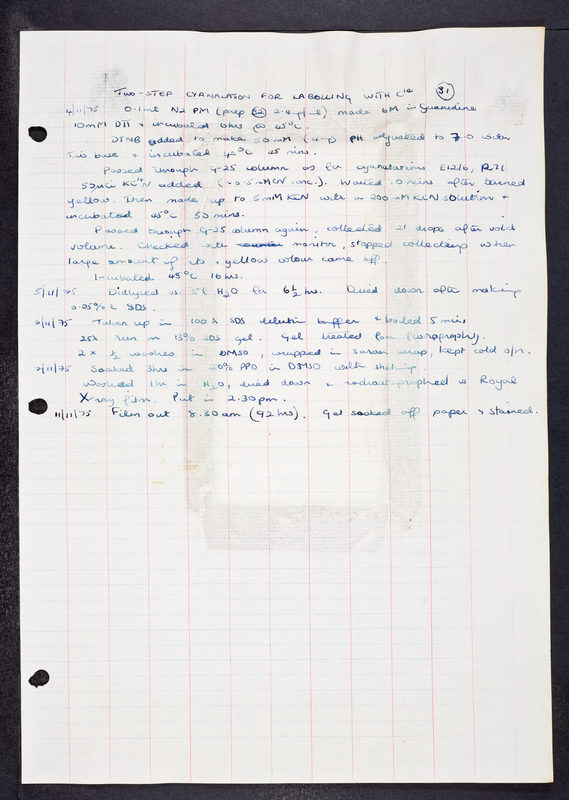 TWO-STEP CYANALATION FOR LABOLLING WITH C14 31
4/11/75 0.1ml N2 PM (prep 2.4 made 6M in Guanidine
10mM DTT & incubated 45°C.
DTNB added to make 50mM PH adjusted to 7.0 with
Tris base & incubated 45°C 45 mins.
Passed through G-25 column as for cyanalations E12/6, P.71
KC14N added 0.5mMCN conc.). Waited 10 mins after turned
yellow. Then made up to 5mMKCN with a 200mMKCN solution &
incubated 45°C 50 mins.
Passed through G-25 column again, collected 21 drops after void
volume. Checked with monitor, stopped collecting when
large amount of cts & yellow colour came off.
Incubated 45°C 16 hrs.
5/11/75 Dialysed vs. 5l H2O for 6½ hrs. Dried down after making
0.05% in SDS.
6/11/75 Taken up in 100λ SDS dilution buffer & boiled 5 mins
25λ run on 13% SDS gel. Gel treated for
2 x ½ washes in DMSO, wrapped in saran wrap, kept cold o/n.
7/11/75 Soaked 3hrs in 20% PPO in DMSO with shaking.
Washed 1hr in H2O, dried down & radioautographed vs Royal
X-ray film. Put in 2.30pm.
11/11/75 Film out 8.30am (92hrs). Gel soaked off paper & stained.